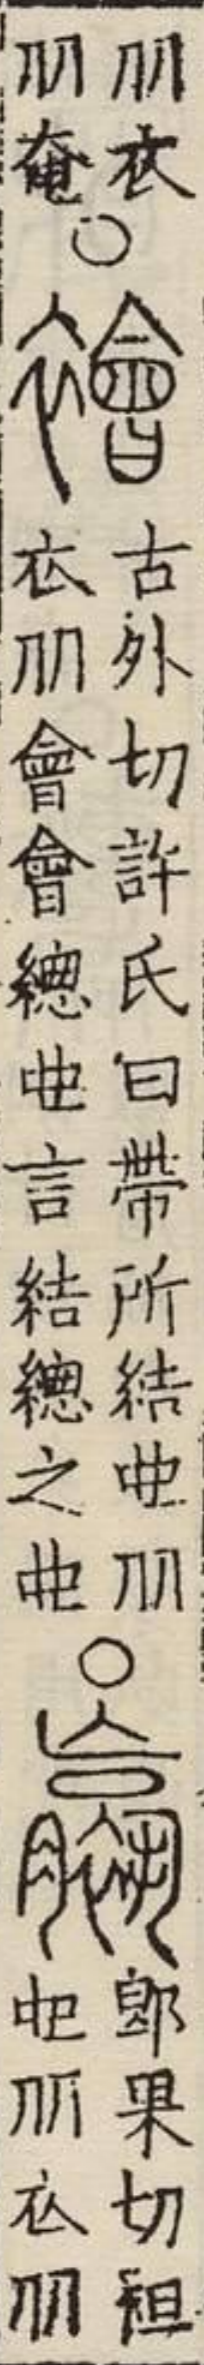 从衣
从奄
○
襘
古外切許氏曰帶所結也从
衣从會會總也言結總之也
○
郎果切袒
也从衣从